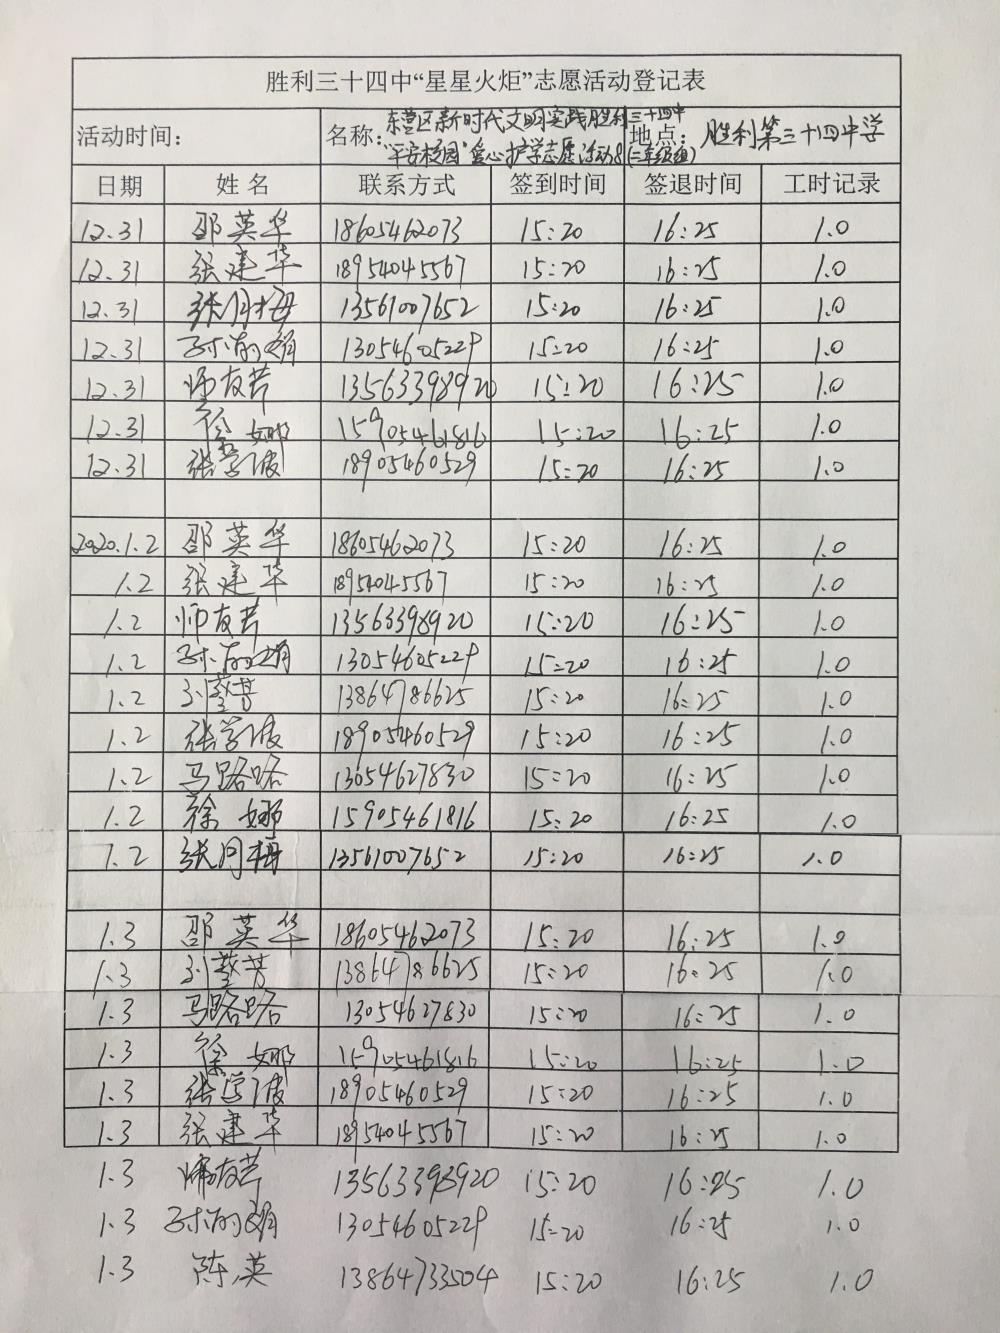 胜利三十四中“星星火炬”志愿活动登记表
活动时间: 名称: 东营区新时代文明实践胜利三十四中 地点: 胜利第三十四中学
"平安校园"爱心护学志愿活动8(二年级组)
日期 姓名 联系方式 签到时间 签退时间 工时记录
12.31 邵英华 18605462073 15:20 16:25 1.0
12.31 张建华 18954045567 15:20 16:25 1.0
12.31 张月梅 13561007652 15:20 16:25 1.0
12.31 13054605229 15:20 16:25 1.0
12.31 师友芹 13563398920 15:20 16:25 1.0
12.31 徐娜 15905461816 15:20 16:25 1.0
12.31 张学波 18905460529 15:20 16:25 1.0
2020.1.2 邵英华 18605462073 15:20 16:25 1.0
1.2 张建华 18954045567 15:20 16:25 1.0
1.2 师友芹 13563398920 15:20 16:25 1.0
1.2 13054605229 15:20 16:25 1.0
1.2 13864786625 15:20 16:25 1.0
1.2 张学波 18905460529 15:20 16:25 1.0
1.2 马路路 13054627830 15:20 16:25 1.0
1.2 徐娜 15905461816 15:20 16:25 1.0
1.2 张月梅 13561007652 15:20 16:25 1.0
1.3 邵英华 18605462073 15:20 16:25 1.0
1.3 13864786625 15:20 16:25 1.0
1.3 马路路 13054627830 15:20 16:25 1.0
1.3 徐娜 15905461816 15:20 16:25 1.0
1.3 张学波 18905460529 15:20 16:25 1.0
1.3 张建华 18954045567 15:20 16:25 1.0
1.3 师友芹 13563398920 15:20 16:25 1.0
1.3 13054605229 15:20 16:25 1.0
1.3 陈英 13864733504 15:20 16:25 1.0